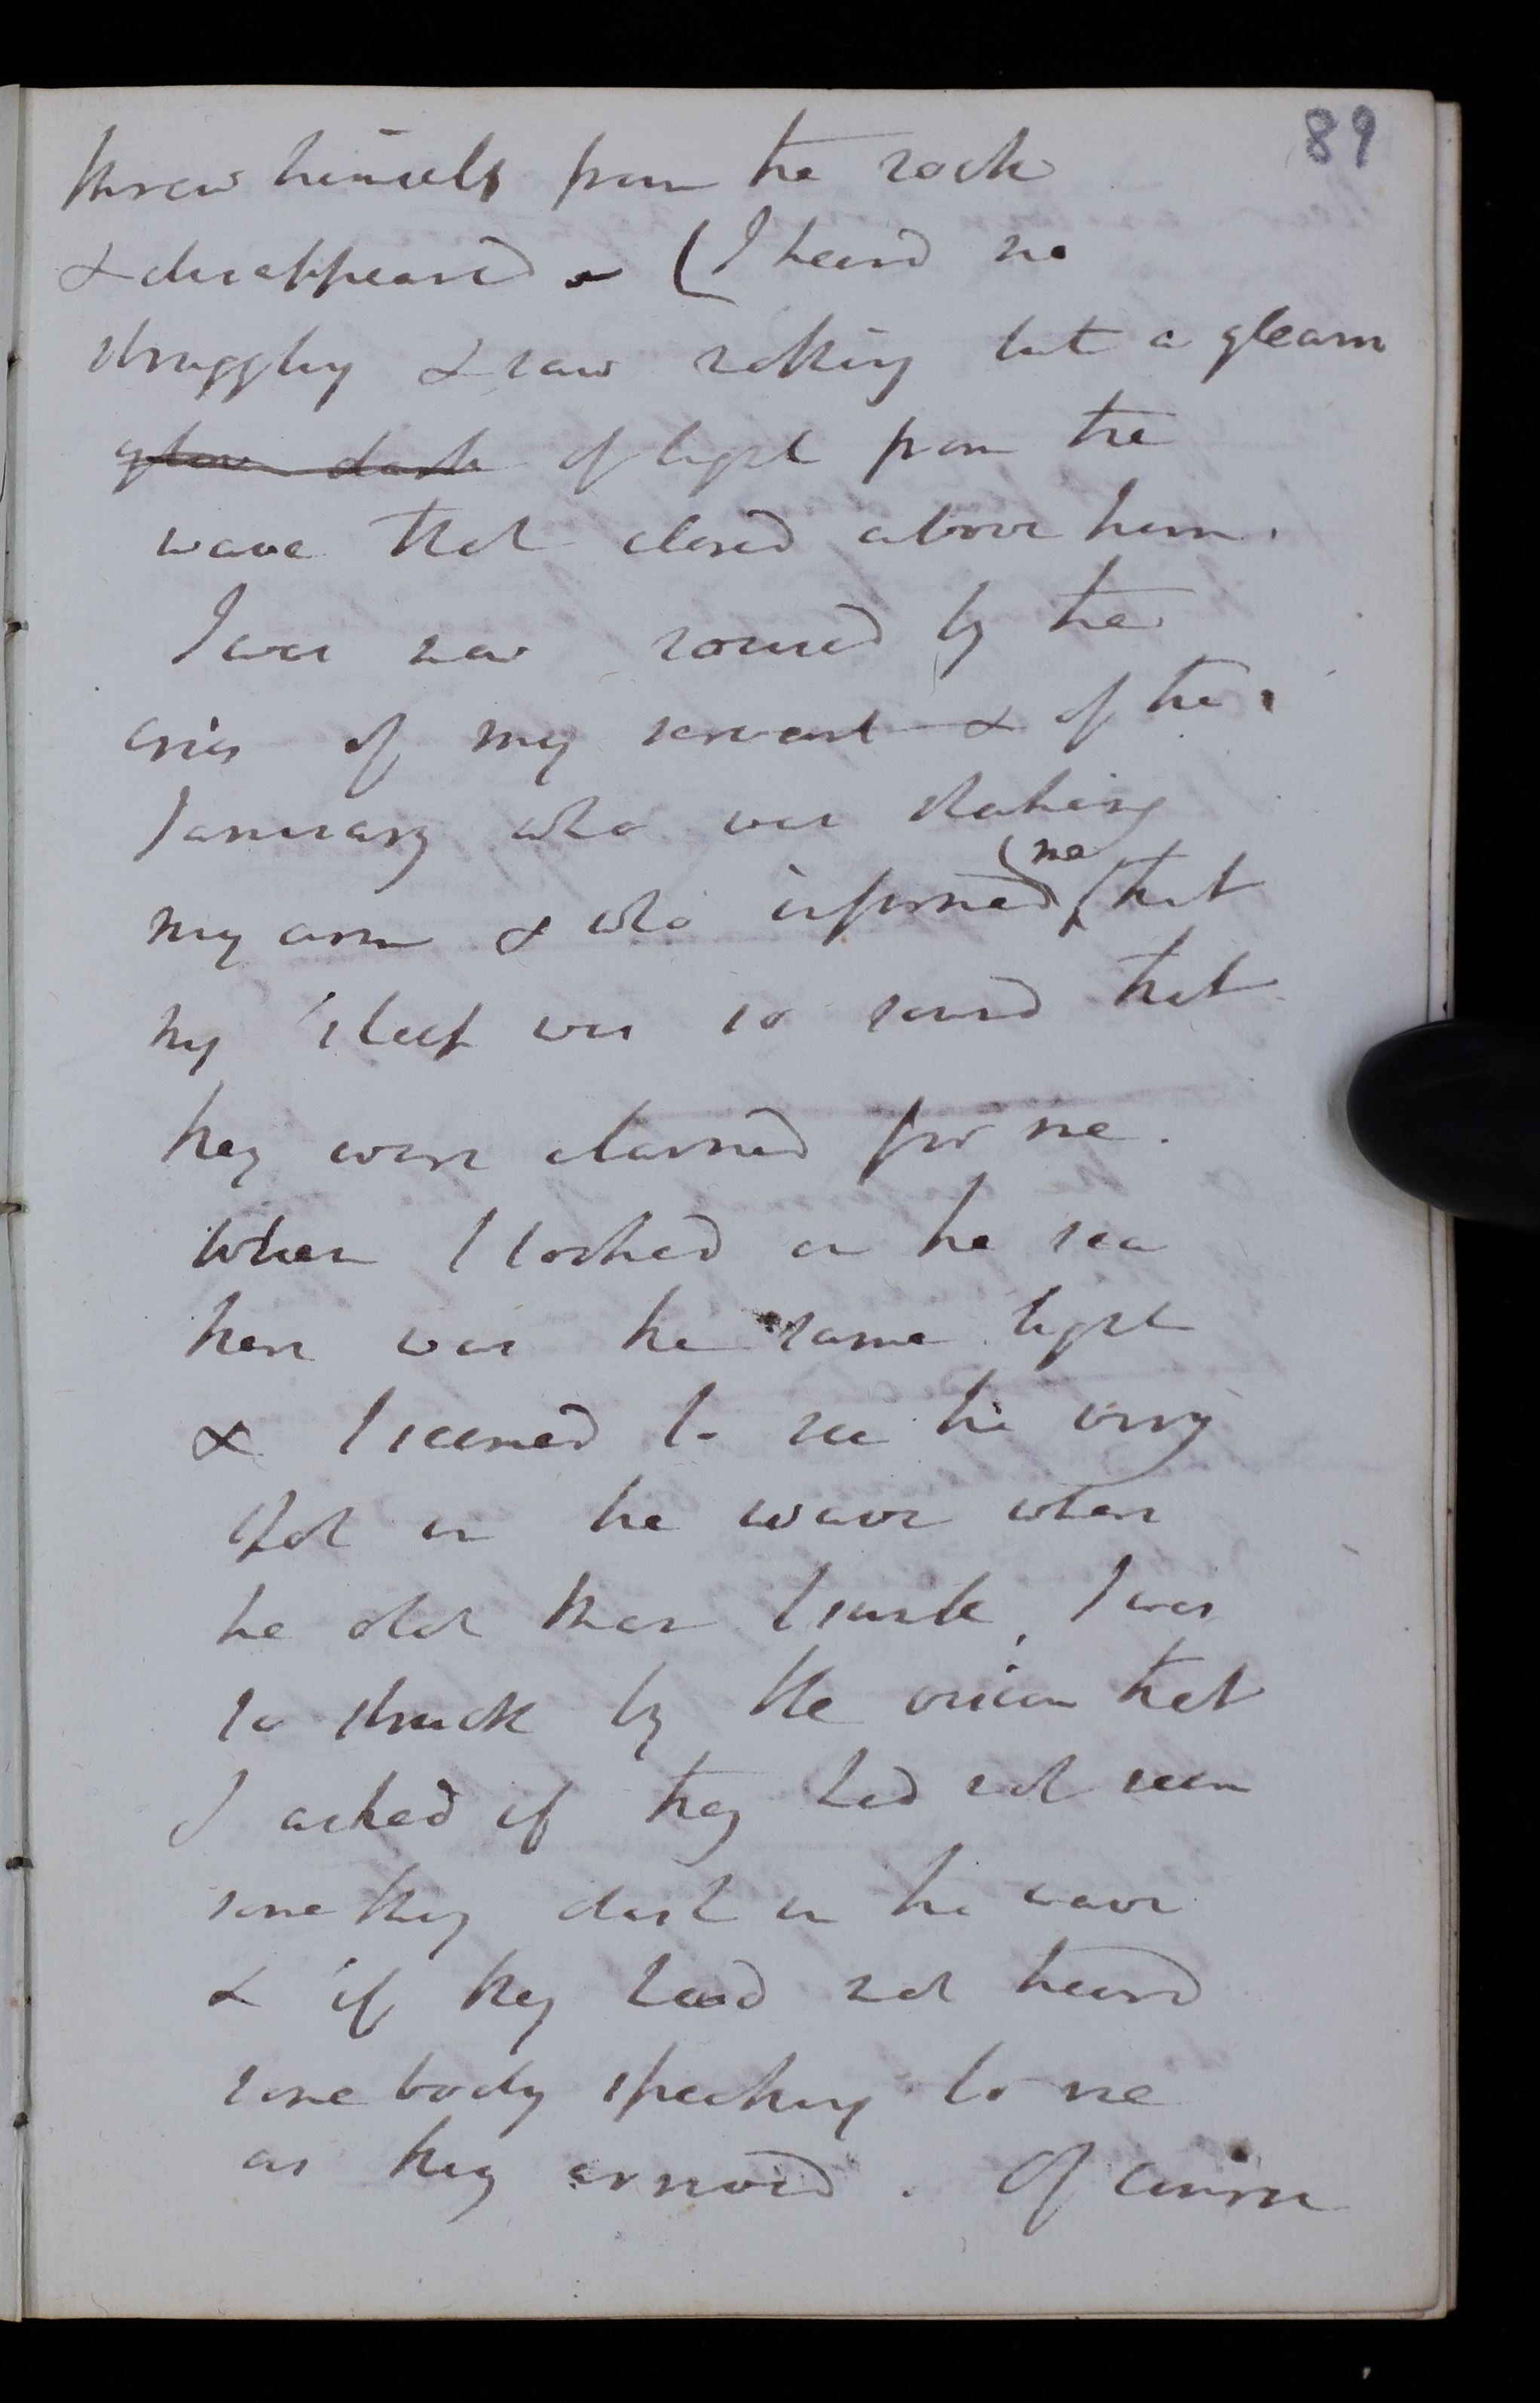 89
threw himself from the rock
& disappeared - (I heard no
struggling & saw nothing but a gleam
of light from the
wave that closed above him.
I was now roused by the
cries of my servant & of the
Janissary who was shaking
my arm & who informed me that
my sleep was so sound that
they were alarmed for me.
When I looked on the sea
there was the same light
& I seemed to see the very
spot in the wave where
the old man sunk. I was
so struck by the vision that
I asked if they had not seen
something dark in the wave
& if they had not heard
somebody speaking to me
as they arrived. Of course